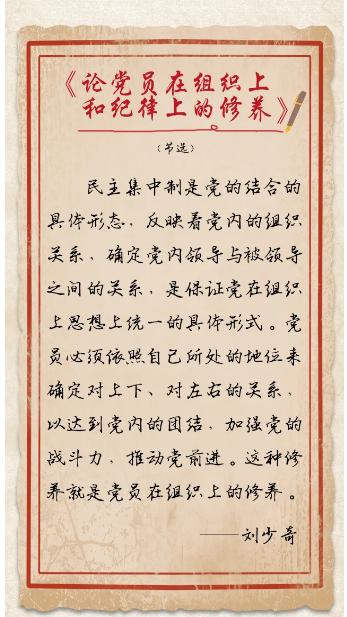 《论党员在组织上
和纪律上的修养》
（节选）
民主集中制是党的结合的
具体形态，反映着党内的组织
关系，确定党内领导与被领导
之间的关系，是保证党在组织
上思想上统一的具体形式。党
员必须依照自己所处的地位来
确定对上下、对左右的关系，
以达到党内的团结，加强党的
战斗力，推动党前进。这种修
养就是党员在组织上的修养。
——刘少奇